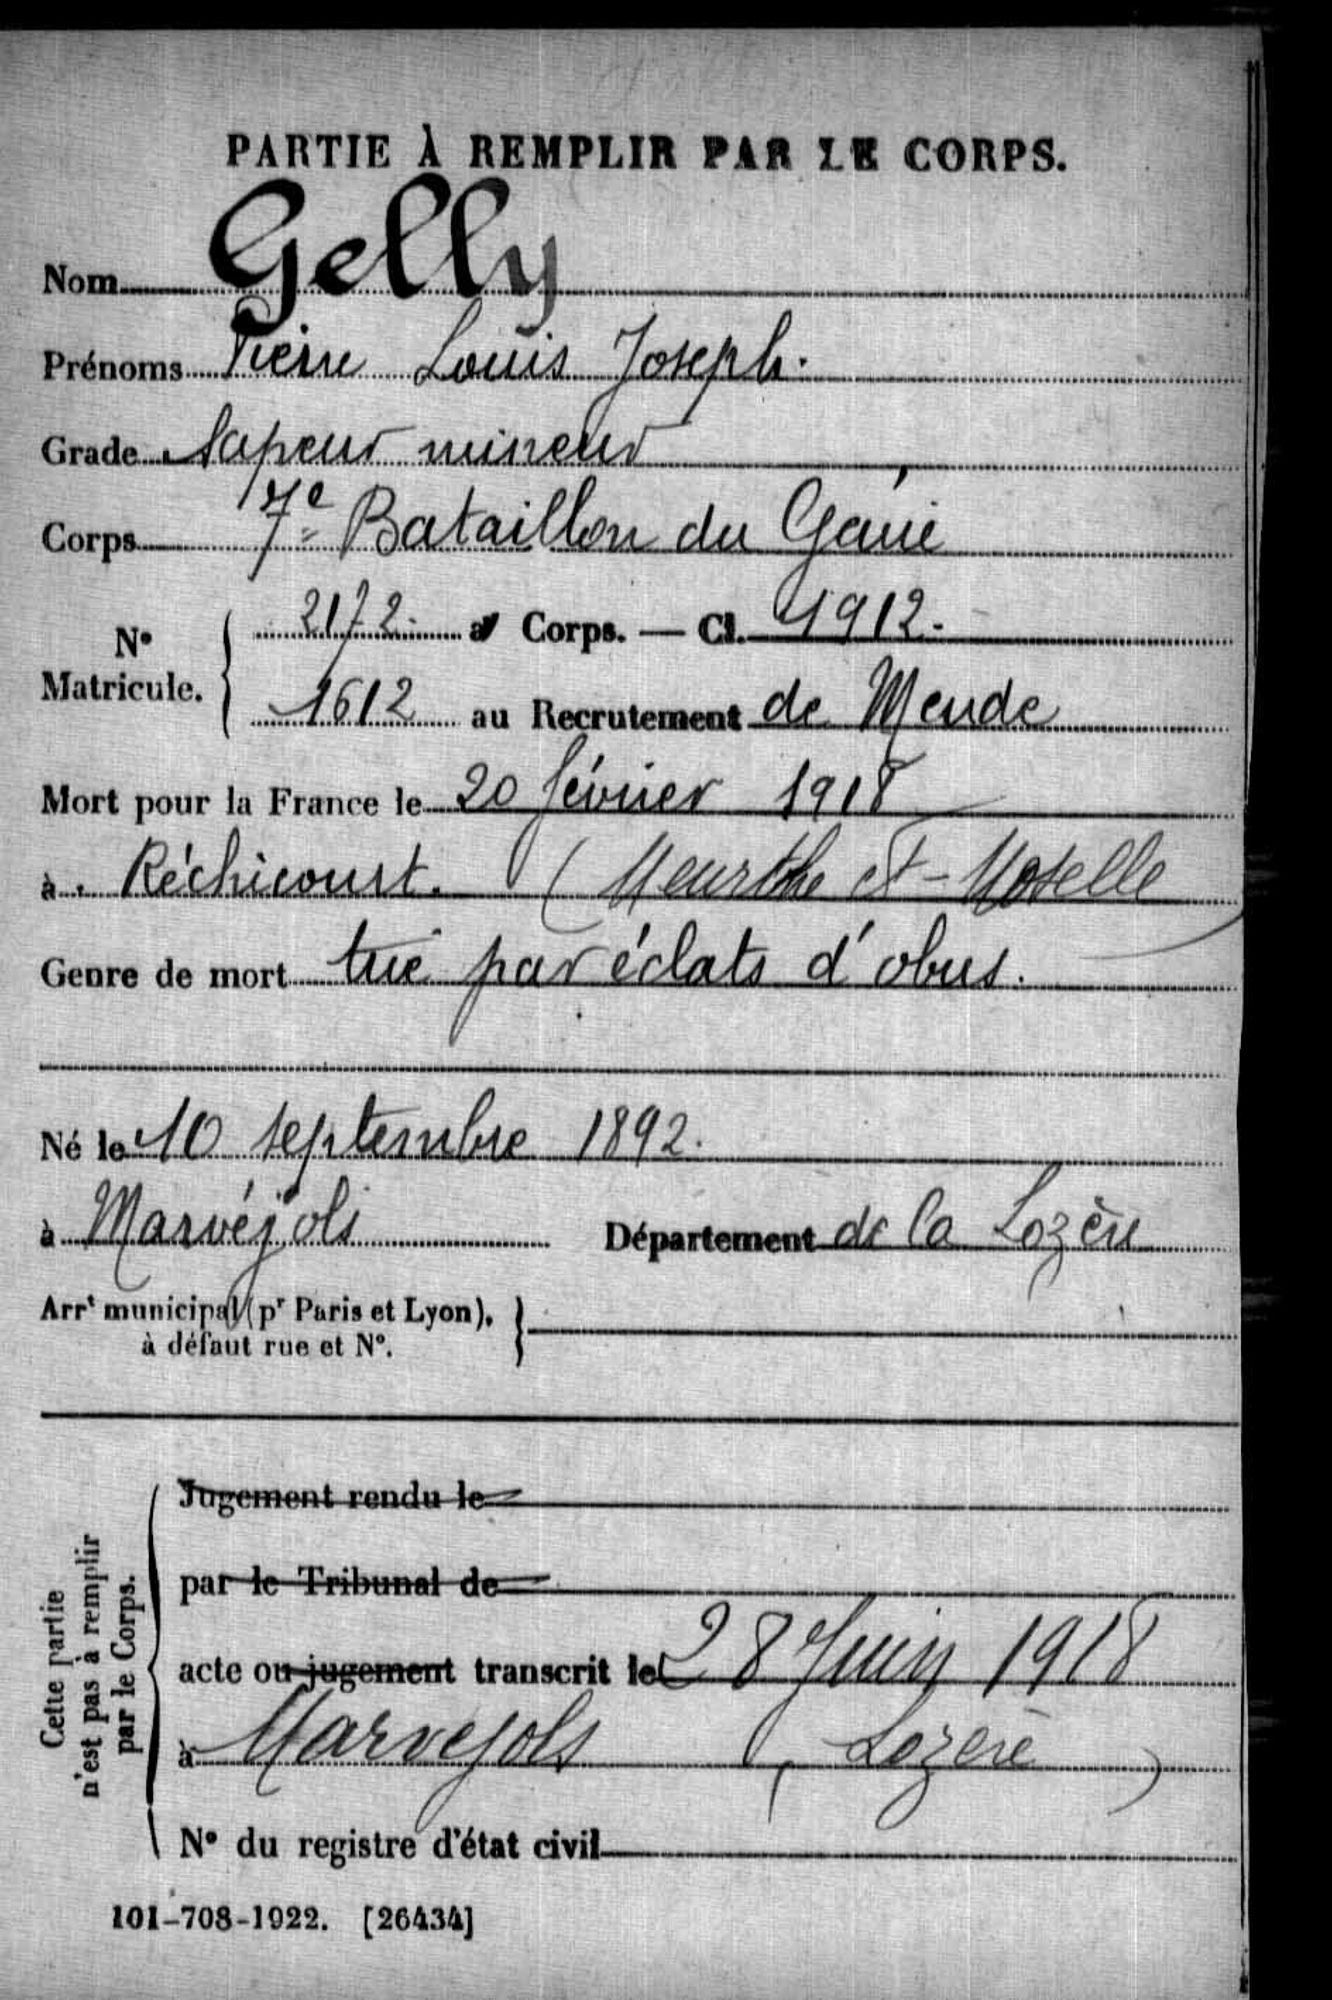 PARTIE À REMPLIR PAR LE CORPS.
Nom Gelly
Prénoms Pierre Louis Joseph.
Grade Sapeur mineur
Corps 7e Bataillon du Génie
N° Matricule. { 2172. au Corps. — Cl. 1912.
1612 au Recrutement de Mende
Mort pour la France le 20 février 1918
à Réchicourt. (Meurthe et-Moselle)
Genre de mort tué par éclats d'obus.
Né le 10 septembre 1892.
à Marvéjols Département de la Lozère
Arrt municipal (pr Paris et Lyon), }
à défaut rue et N°.
Cette partie
n'est pas à remplir
par le Corps.
Jugement rendu le
par le Tribunal de
acte ou jugement transcrit le 28 Juin 1918
à Marvejols (Lozère)
N° du registre d'état civil
101-708-1922. [26434]